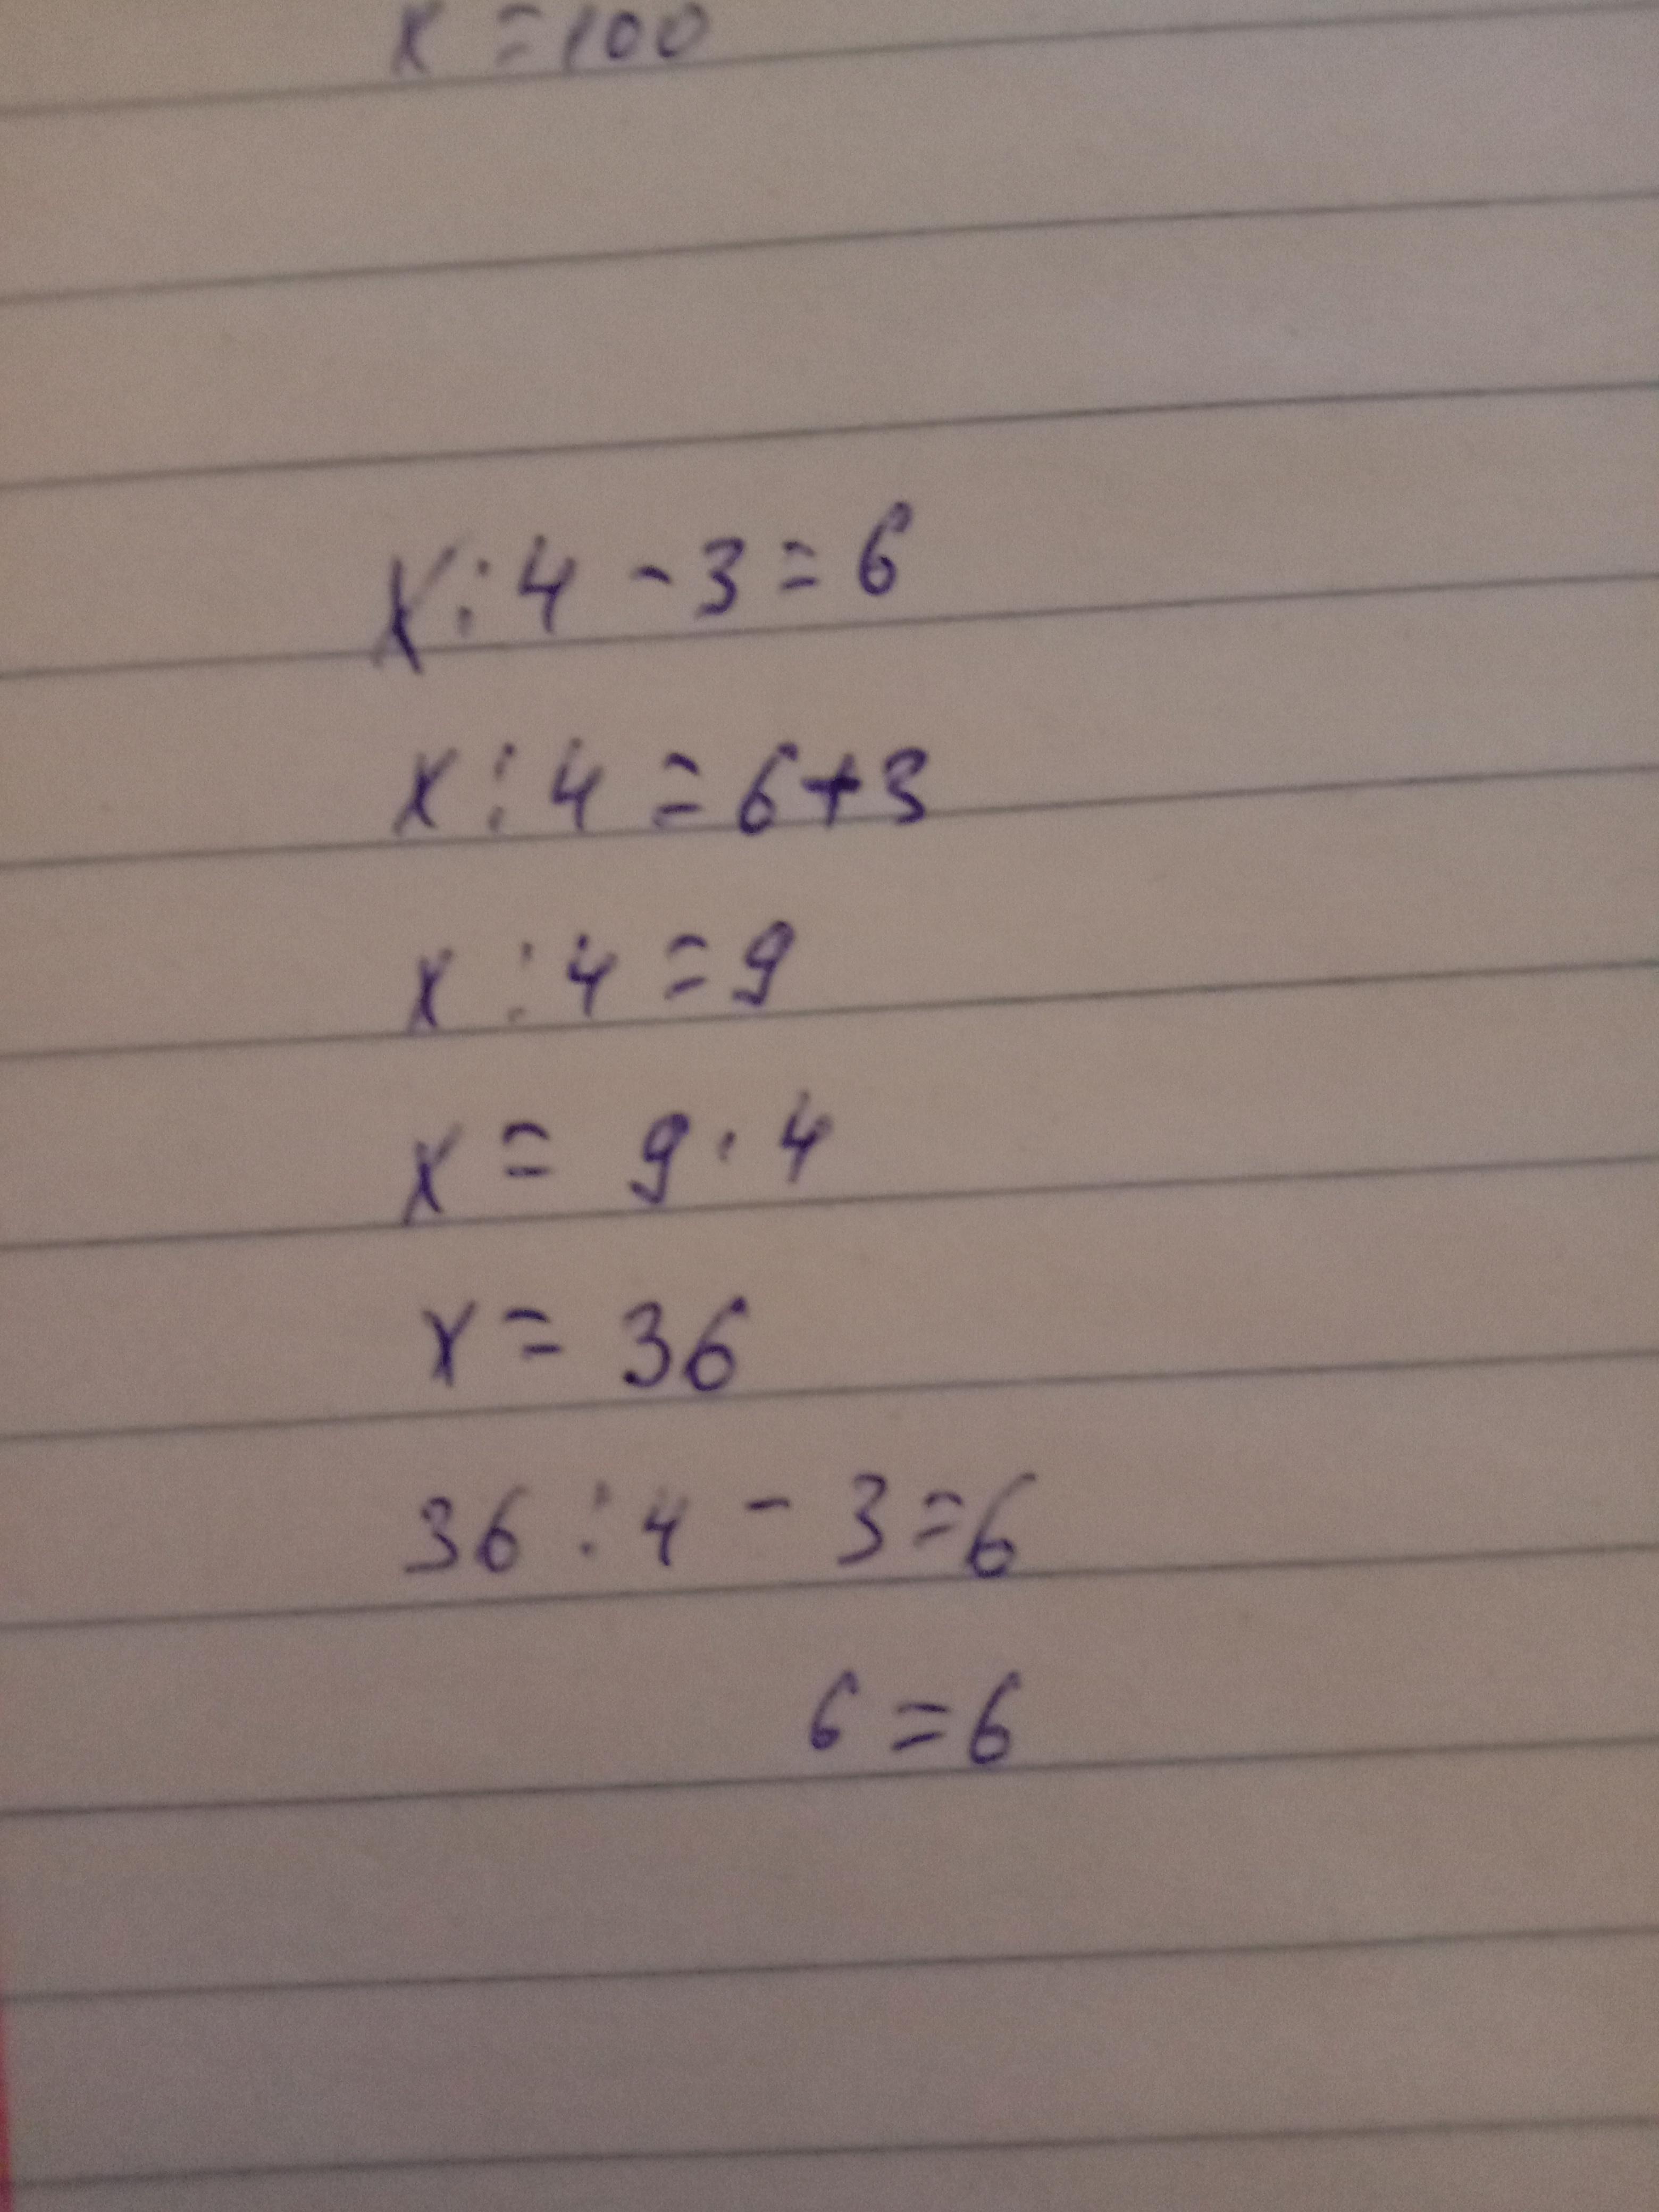 x = 100
x : 4 - 3 = 6
x : 4 = 6 + 3
x : 4 = 9
x = 9 · 4
x = 36
36 : 4 - 3 = 6
6 = 6